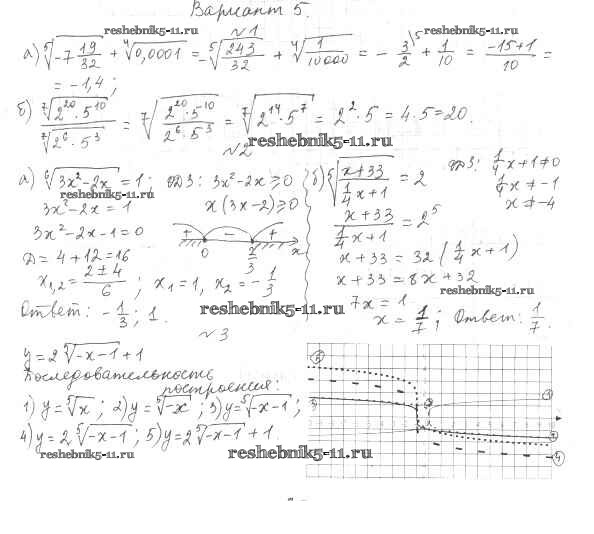 Вариант 5.
reshebnik5-11.ru reshebnik5-11.ru
№1
а) ⁵√(-7 19/32) + ⁴√0,0001 = -⁵√(243/32) + ⁴√(1/10000) = - 3/2 \⁵ + 1/10 = (-15+1)/10 =
= -1,4;
б) ⁷√(2²⁰·5¹⁰) / ⁷√(2⁶·5³) = ⁷√((2²⁰·5¹⁰)/(2⁶·5³)) = ⁷√(2¹⁴·5⁷) = 2²·5 = 4·5 = 20.
reshebnik5-11.ru
№2
а) ⁶√(3x²-2x) = 1; ОДЗ: 3x²-2x ≥ 0
3x²-2x = 1
x(3x-2) ≥ 0
3x²-2x-1 = 0
+ - +
0 2/3 x
D = 4+12 = 16
x₁,₂ = (2±4)/6; x₁ = 1, x₂ = -1/3
Ответ: -1/3; 1.
reshebnik5-11.ru
б) ⁵√((x+33)/(1/4 x+1)) = 2
ОДЗ: 1/4 x+1 ≠ 0
1/4 x ≠ -1
x ≠ -4
(x+33)/(1/4 x+1) = 2⁵
x+33 = 32(1/4 x+1)
x+33 = 8x+32
reshebnik5-11.ru
7x = 1
x = 1/7; Ответ: 1/7.
№3
y = 2⁵√(-x-1)+1
Последовательность
построения:
1) y = ⁵√x; 2) y = ⁵√-x; 3) y = ⁵√(-x-1);
4) y = 2⁵√(-x-1); 5) y = 2⁵√(-x-1)+1.
reshebnik5-11.ru reshebnik5-11.ru